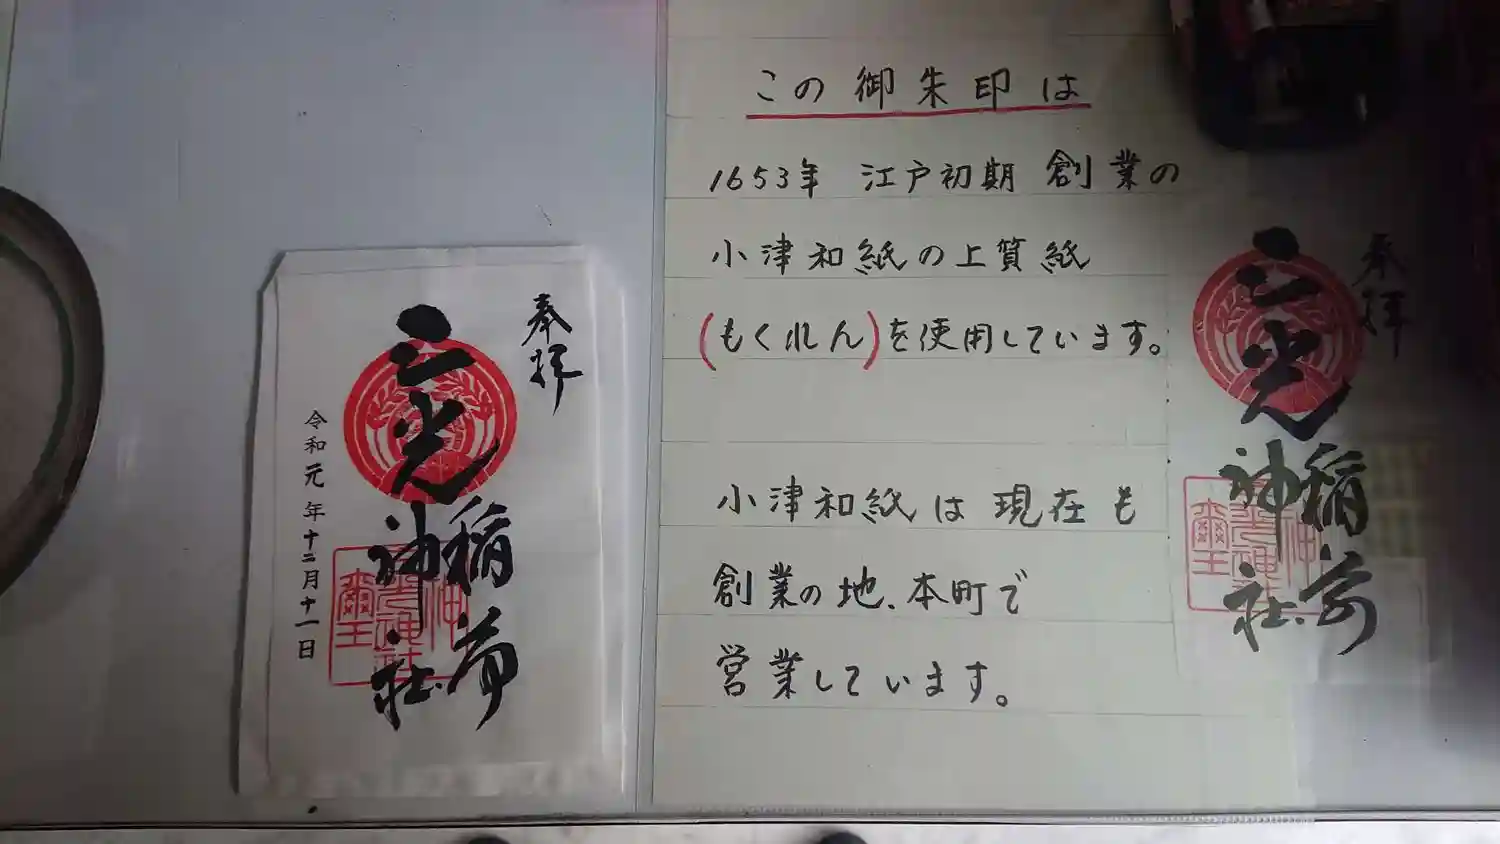 奉拝
三光
稲荷
神社
令和元年十二月十一日
この御朱印は
1653年 江戸初期 創業の
小津和紙の上質紙
(もくれん)を使用しています。
小津和紙は現在も
創業の地、本町で
営業しています。
奉拝
三光
稲荷
神社